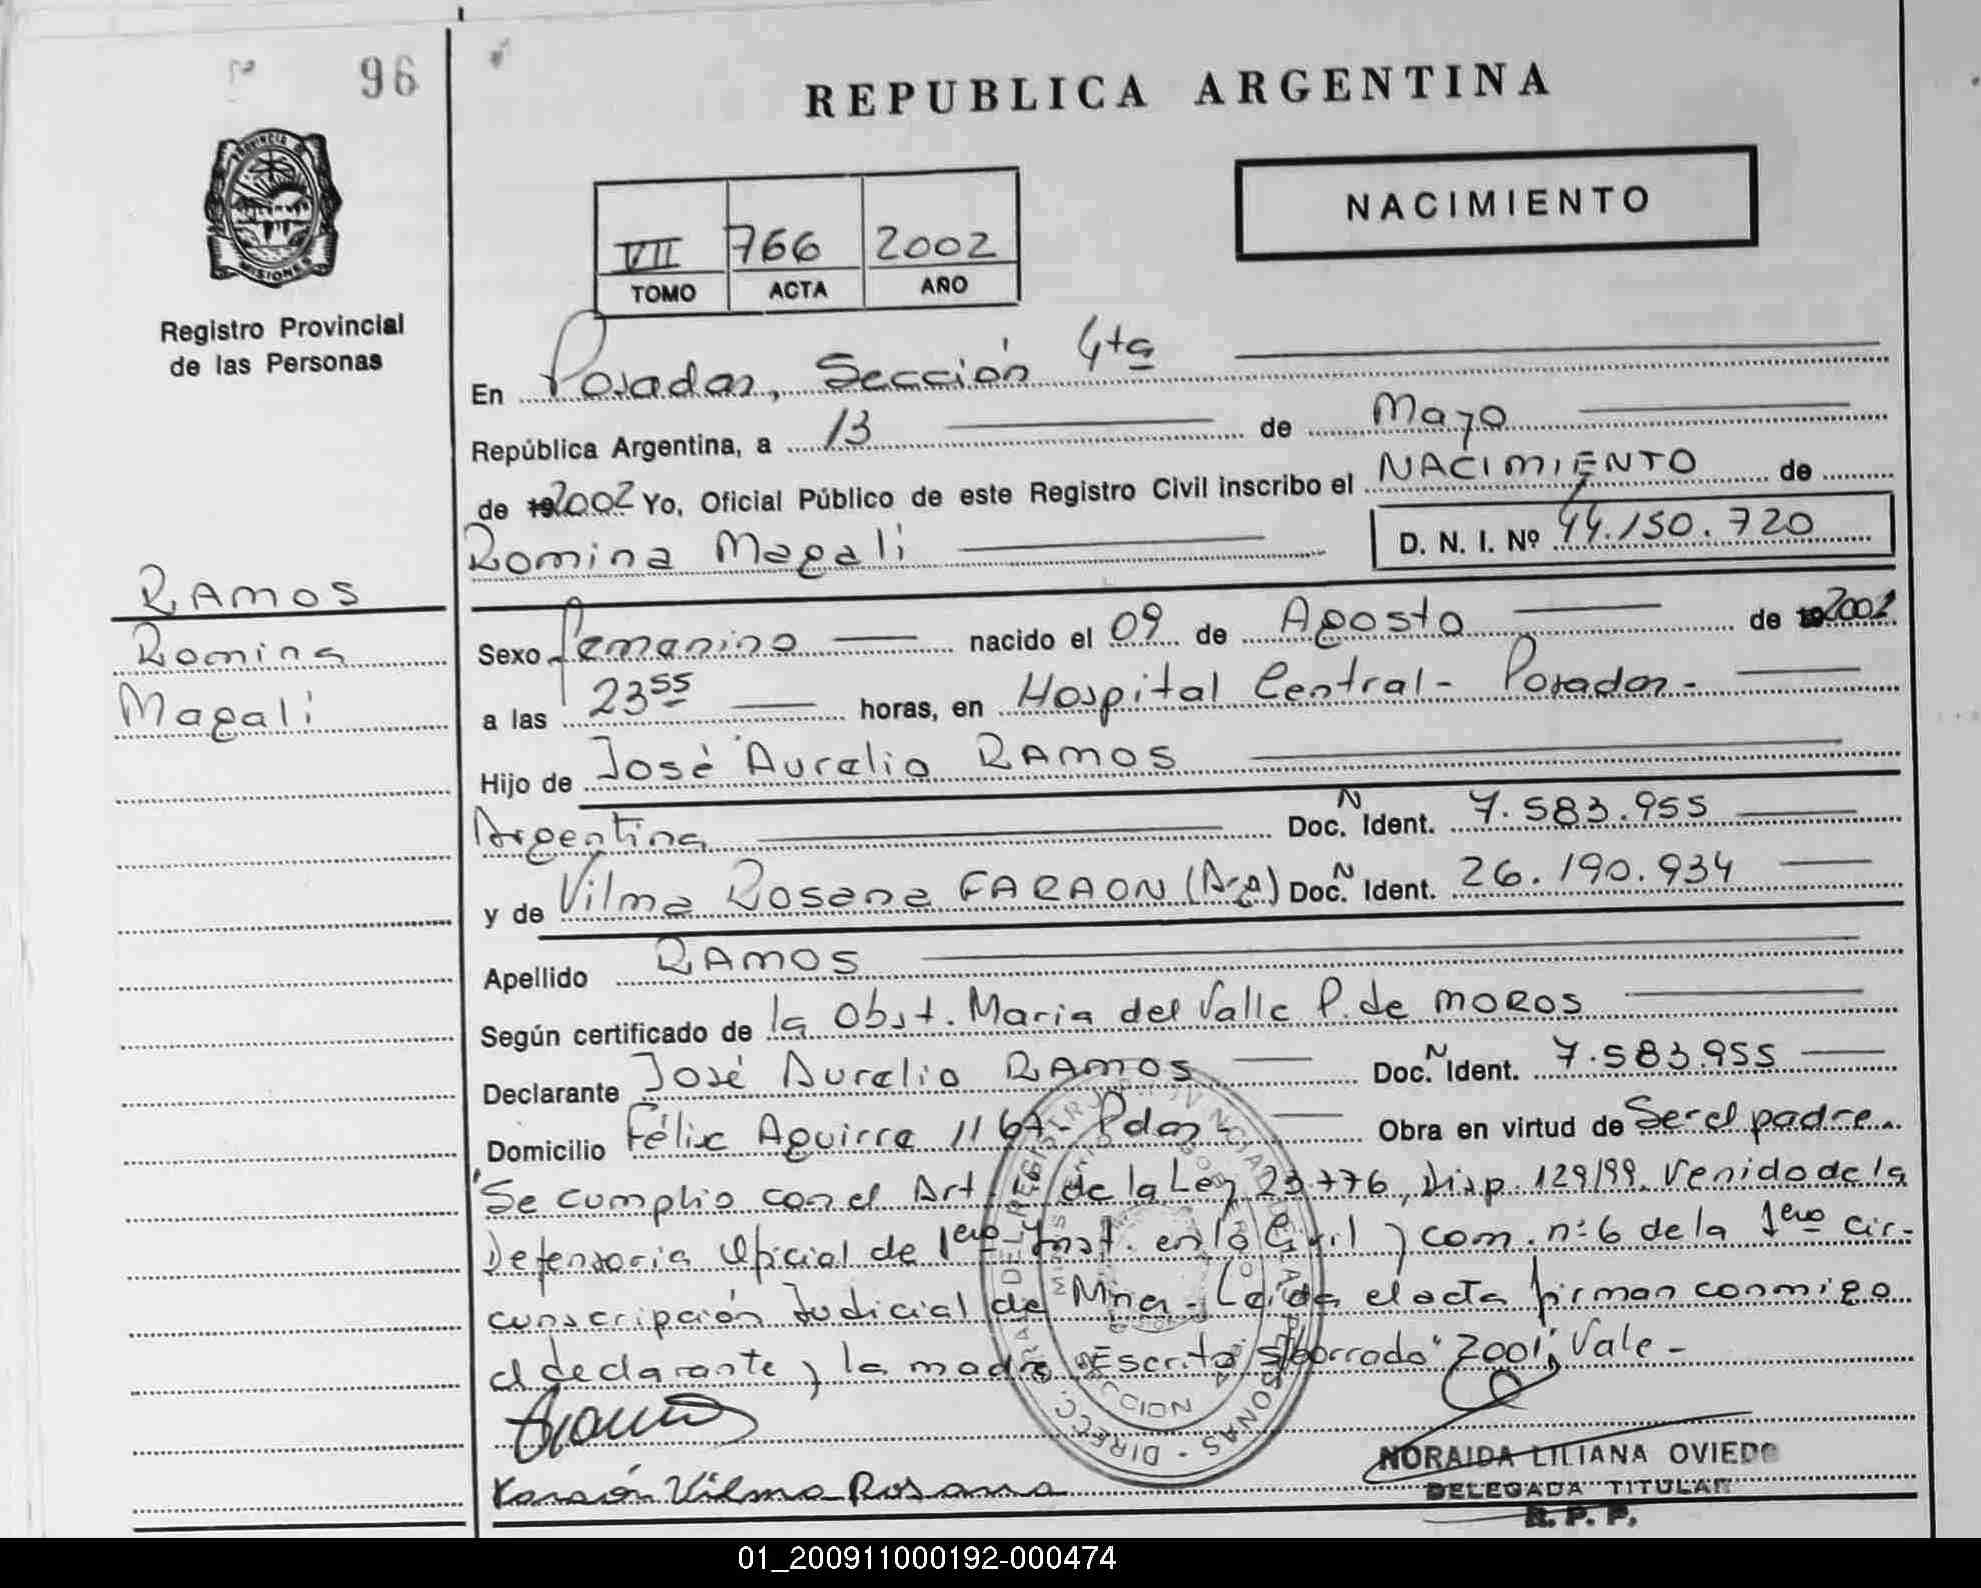 96
REPUBLICA ARGENTINA
NACIMIENTO
VII 766 2002
TOMO ACTA AÑO
PROVINCIA DE
MISIONES
Registro Provincial
de las Personas
En Posadas, Sección 4ta
República Argentina, a 13 de Mayo
de 192002 Yo, Oficial Público de este Registro Civil inscribo el NACIMIENTO de
Romina Magali D. N. I. Nº 44.150.720
RAMOS
Romina
Magali
Sexo femenino nacido el 09 de Agosto de 2001
a las 23 55 horas, en Hospital Central - Posadas -
Hijo de José Aurelio RAMOS
Argentina Doc. N Ident. 7.583.955
y de Vilma Rosana FARAON (Arg) Doc. N Ident. 26.190.934
Apellido RAMOS
Según certificado de la Obst. Maria del Valle P. de MOROS
Declarante José Aurelio RAMOS Doc. N Ident. 7.583.955
Domicilio Félix Aguirre 1167 - Pdas - Obra en virtud de Ser el padre.
Se cumplio con el Art. de la Ley 23776, Disp. 129/99. Venido de la
Defensoria Oficial de 1era Inst. en lo Civil y com. nº 6 de la 1era cir-
cunscripción Judicial de Mnes - Leida el acta firman conmigo
el declarante y la madre. Escrito s/borrado "2001", Vale -
Faraón Vilma Rosana
NORAIDA LILIANA OVIEDO
DELEGADA TITULAR
R. P. P.
01_200911000192-000474